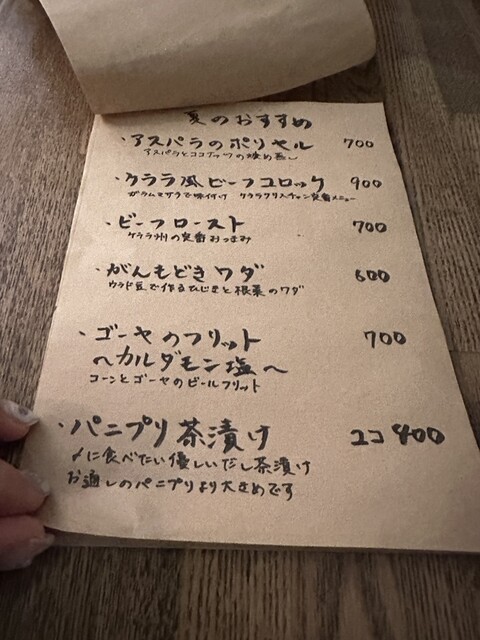 夏のおすすめ
・アスパラのポリヤル 700
アスパラとココナッツの炒め蒸し
・ケララ風ビーフコロッケ 900
ガラムマサラで味付け ケララクリスチャン定番メニュー
・ビーフロースト 700
ケララ州の定番おつまみ
・がんもどきワダ 600
ウラド豆で作るひじきと根菜のワダ
・ゴーヤのフリット 700
〜カルダモン塩〜
コーンとゴーヤのビールフリット
・パニプリ茶漬け 2コ 400
〆に食べたい優しいだし茶漬け
お通しのパニプリより大きめです